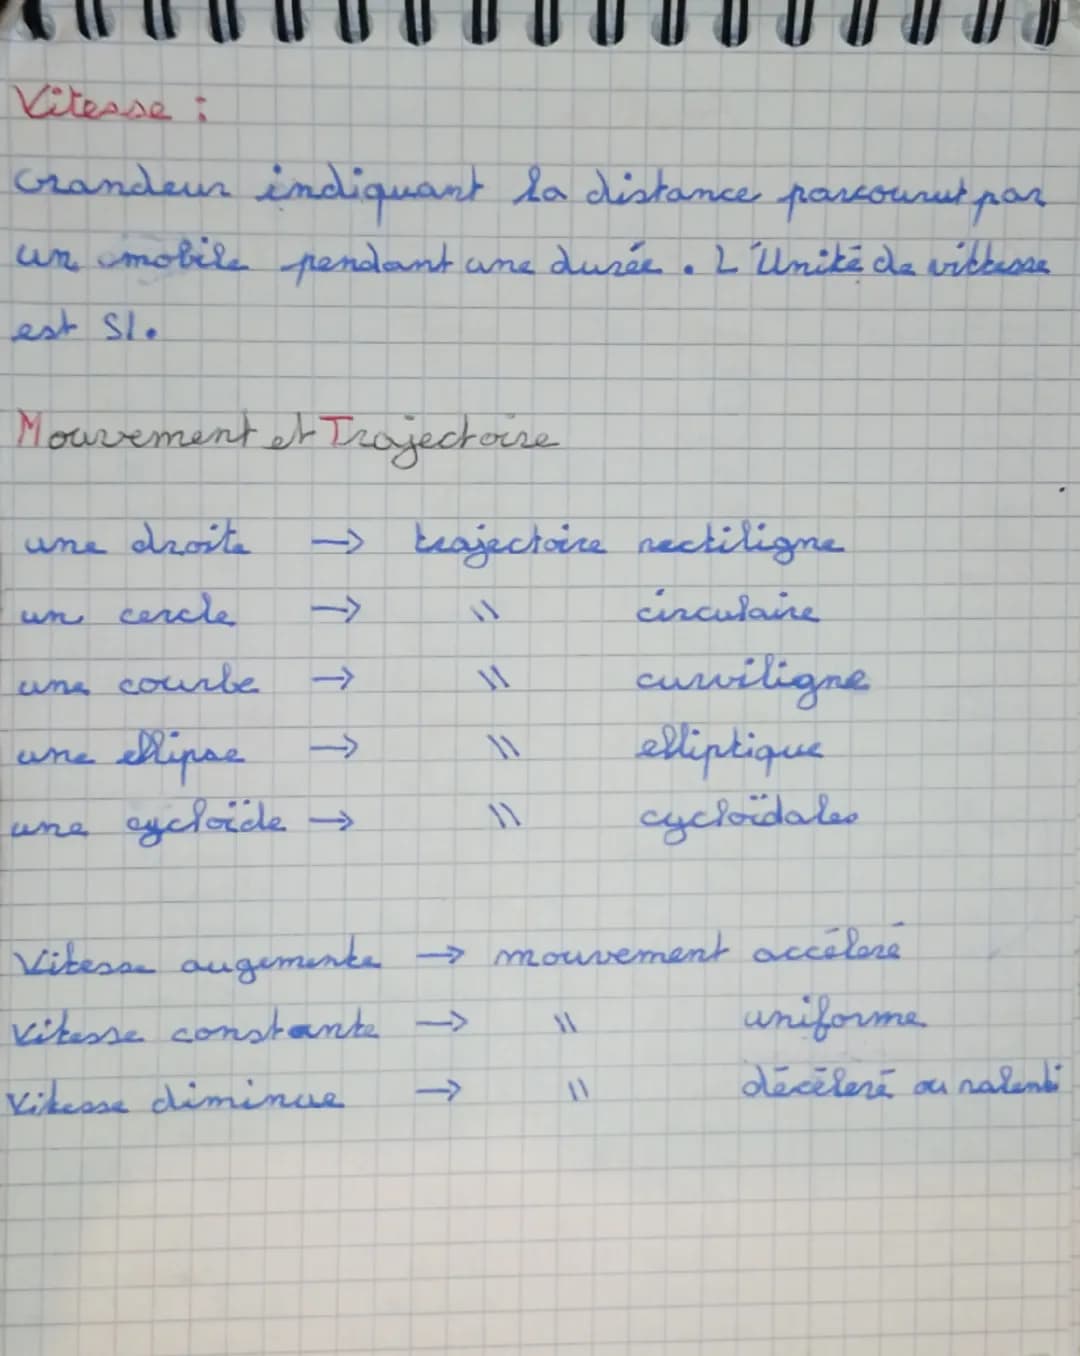 Vitesse :
Grandeur indiquant la distance parcourut par
un mobile pendant une durée. L'Unité de vittesse
est SI.
Mouvement et Trajectoire
une droite → trajectoire rectiligne
un cercle → " circulaire
une courbe → " curviligne
une ellipse → " elliptique
une cycloïde → " cycloïdales
Vitesse augmente → mouvement accéléré
Vitesse constante → " uniforme
Vitesse diminue → " décéléré ou ralenti